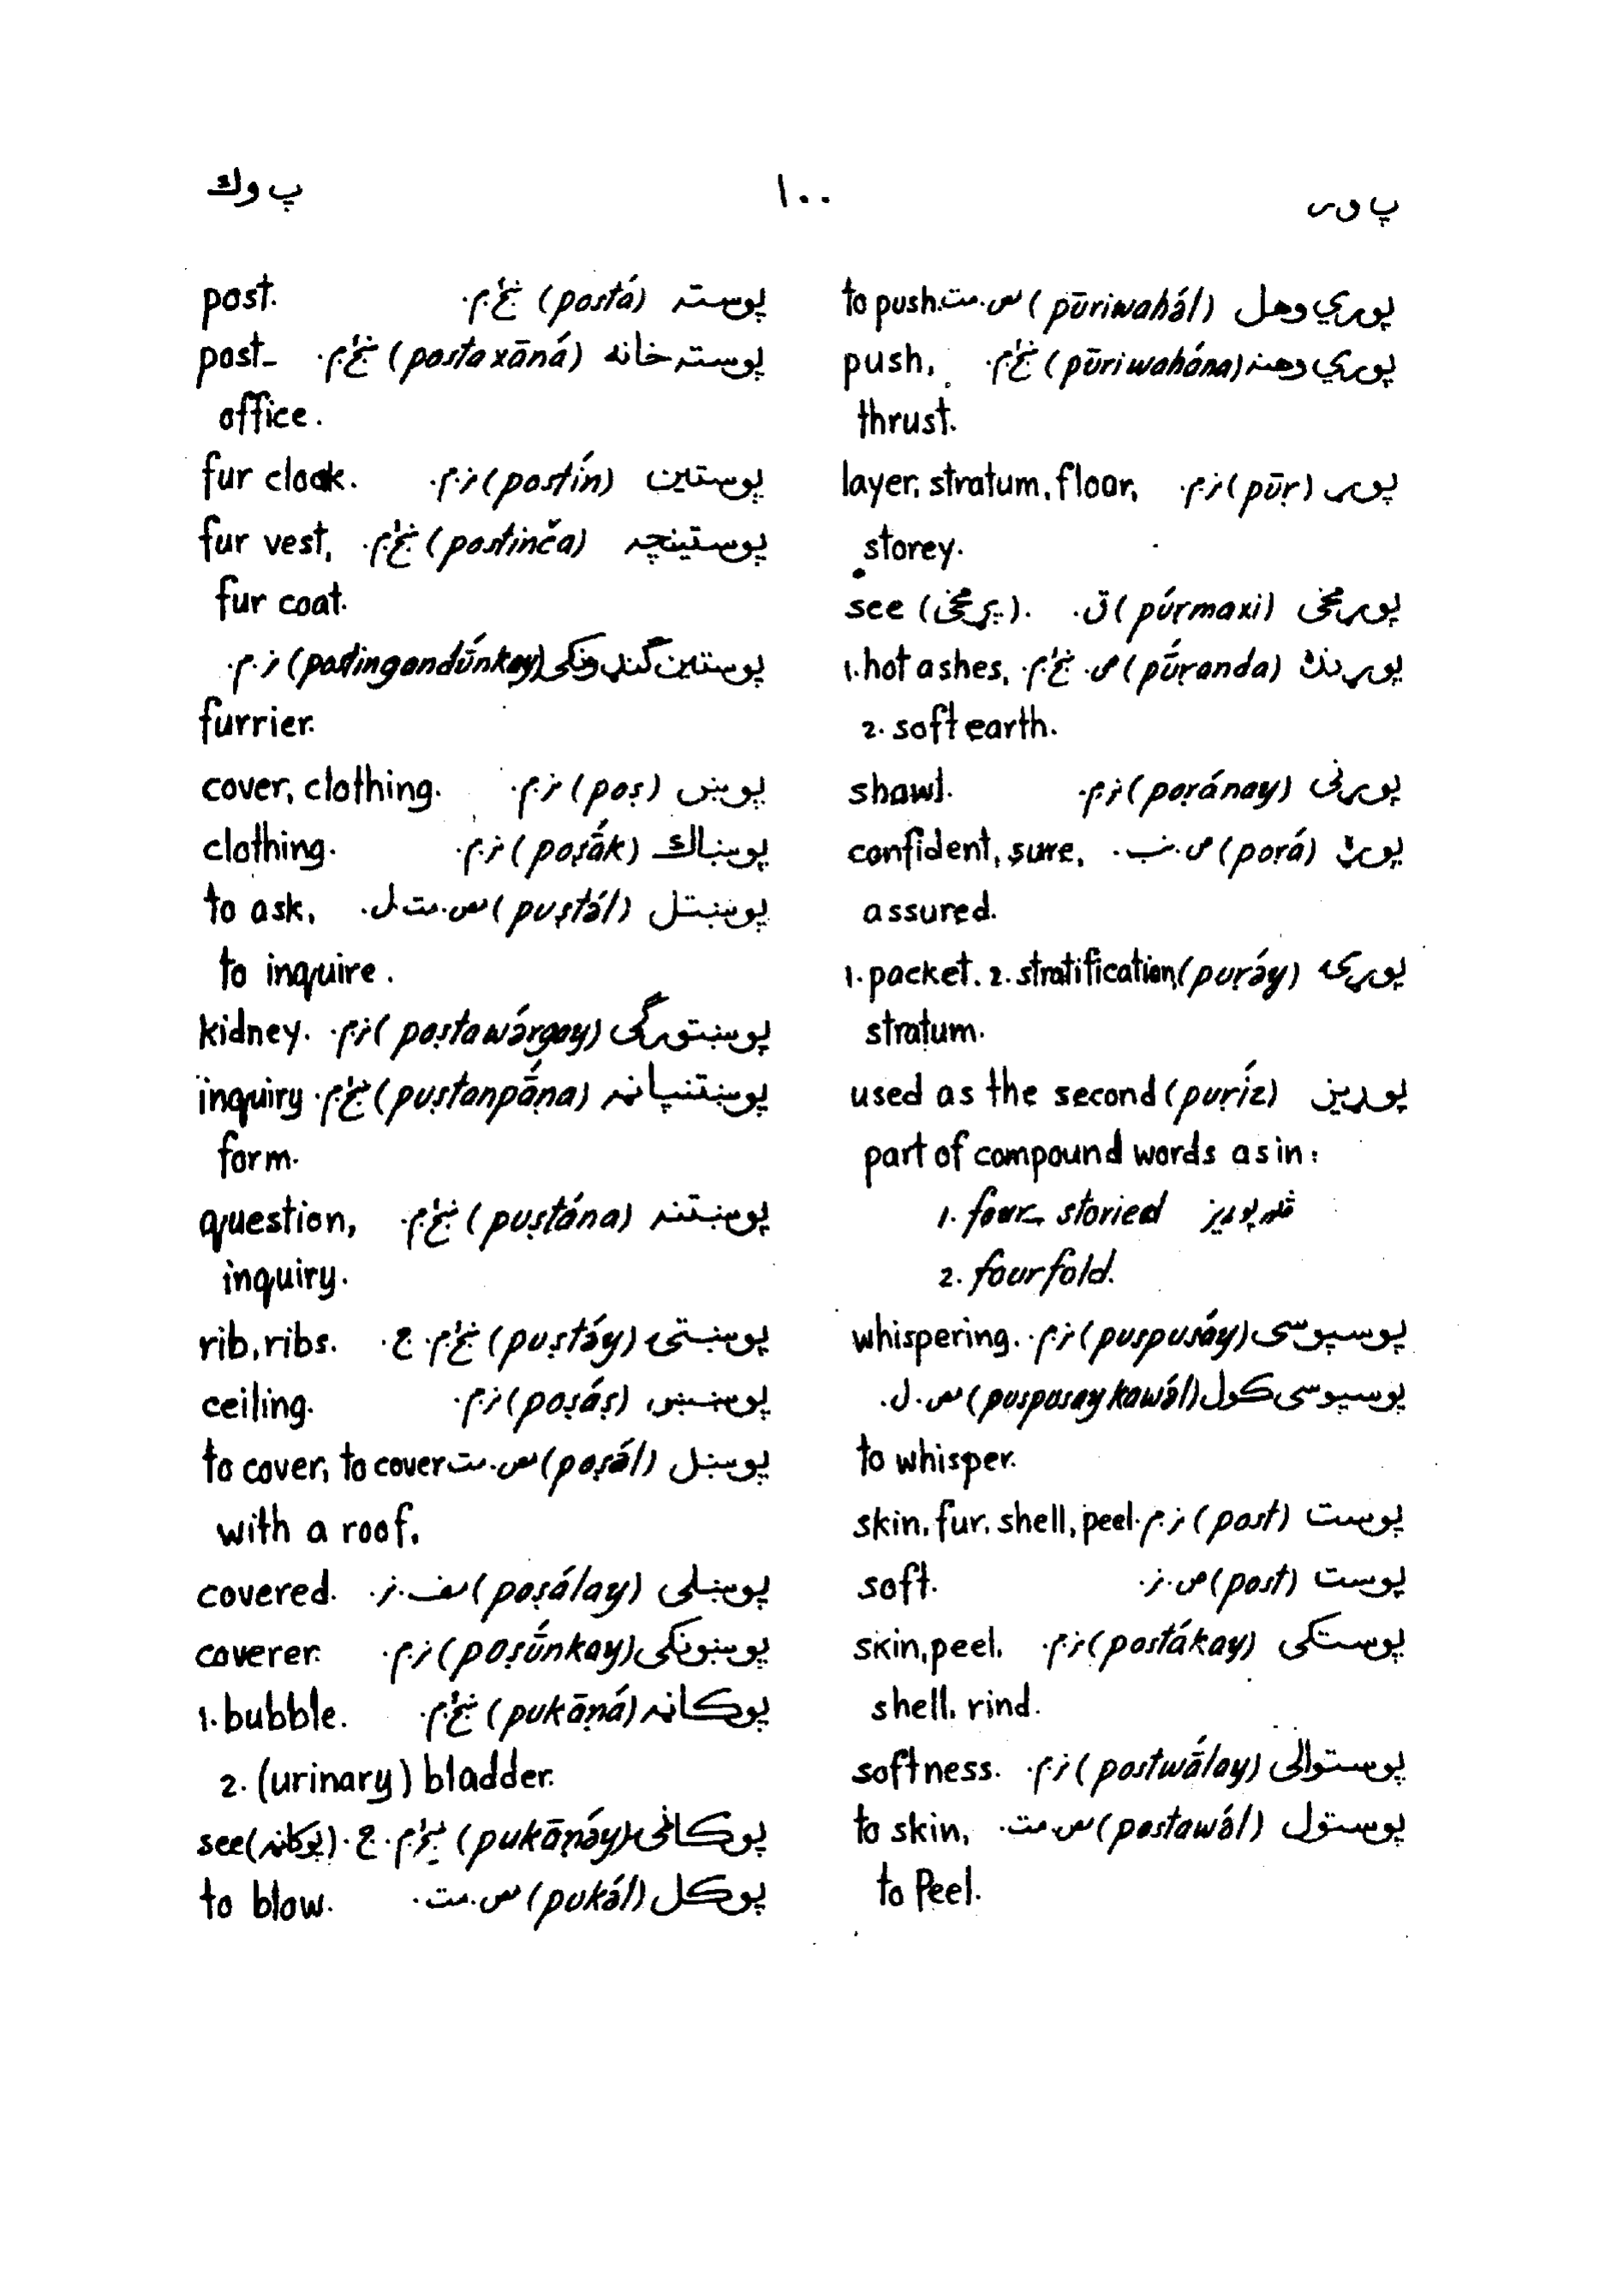 پ وړ
۱۰۰
پ وك
پورې وهل (pūriwahə́l) س.مت. to push.
پورې وهنه (pūriwahə́na) ښځ.م. push,
thrust.
پوړ (pūṛ) ز.م. layer, stratum, floor,
storey.
پوړمخى (púṛmaxi) ق. see (پړمخى).
پوړنده (pū́ṛanda) ص. ښځ.م. 1. hot ashes,
2. soft earth.
پوړنى (poṛánay) ز.م. shawl.
پوړه (poṛá) ص. ښ. confident, sure,
assured.
پوړۍ (puṛə́y) 1. packet. 2. stratification,
stratum.
پوړيز (puṛíz) used as the second
part of compound words as in:
څلورپوړيز 1. four-storied
2. fourfold.
پوسپوسى (puspusáy) ز.م. whispering.
پوسپوسى كول (puspusay kawə́l) س.ل.
to whisper.
پوست (post) ز.م. skin, fur, shell, peel.
پوست (post) ص.ز. soft.
پوستكى (postákay) ز.م. skin, peel,
shell, rind.
پوستوالى (postwā́lay) ز.م. softness.
پوستول (postawə́l) س.مت. to skin,
to Peel.
پوسته (postá) ښځ.م. post.
پوسته خانه (postaxāná) ښځ.م. post-
office.
پوستين (postín) ز.م. fur cloak.
پوستينچه (postinča) ښځ.م. fur vest,
fur coat.
پوستين گنډونكى (postinganḍúnkay) ز.م.
furrier.
پوښ (poṣ) ز.م. cover, clothing.
پوښاك (poṣā́k) ز.م. clothing.
پوښتل (puṣtə́l) س.مت.ل. to ask,
to inquire.
پوښتورگى (poṣtawə́rgay) ز.م. kidney.
پوښتنپاڼه (puṣtanpā́ṇa) ښځ.م. inquiry
form.
پوښتنه (puṣtə́na) ښځ.م. question,
inquiry.
پوښتۍ (puṣtə́y) ښځ.م.ج. rib, ribs.
پوښښ (poṣə́ṣ) ز.م. ceiling.
پوښل (poṣə́l) س.مت. to cover, to cover
with a roof.
پوښلى (poṣə́lay) مف.ز. covered.
پوښونكى (poṣū́nkay) ز.م. coverer.
پوكاڼه (pukāṇá) ښځ.م. 1. bubble.
2. (urinary) bladder.
پوكاڼۍ (pukāṇə́y) ښځ.م.ج. see (پوكاڼه).
پوكل (pukə́l) س.مت. to blow.